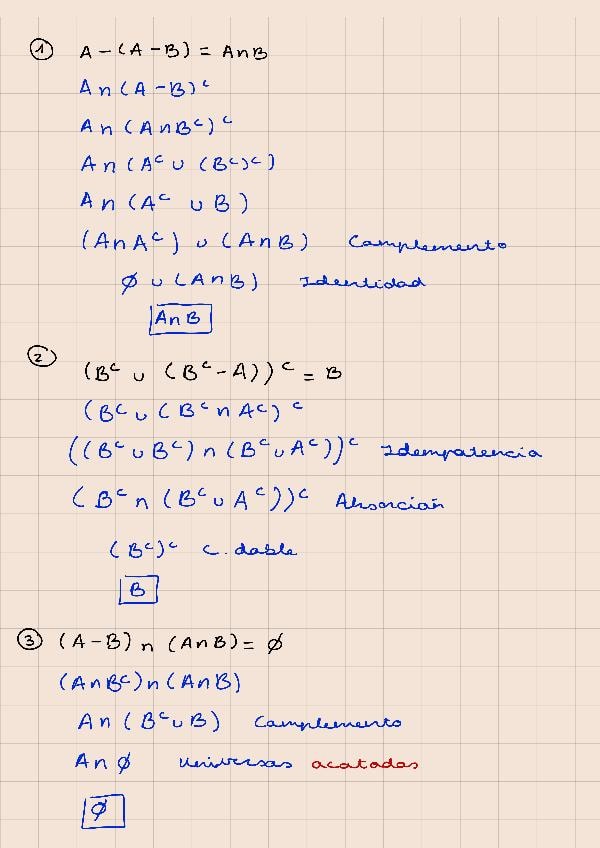 ① A - (A - B) = A∩B
A∩(A - B)ᶜ
A∩(A∩Bᶜ)ᶜ
A∩(Aᶜ ∪ (Bᶜ)ᶜ)
A∩(Aᶜ ∪ B)
(A∩Aᶜ) ∪ (A∩B) Complemento
∅ ∪ (A∩B) Identidad
A∩B
② (Bᶜ ∪ (Bᶜ - A))ᶜ = B
(Bᶜ ∪ (Bᶜ ∩ Aᶜ)ᶜ
((Bᶜ ∪ Bᶜ) ∩ (Bᶜ ∪ Aᶜ))ᶜ Idempotencia
(Bᶜ ∩ (Bᶜ ∪ Aᶜ))ᶜ Absorción
(Bᶜ)ᶜ C. doble
B
③ (A - B) ∩ (A∩B) = ∅
(A∩Bᶜ)∩(A∩B)
A∩(Bᶜ ∪ B) Complemento
A∩∅ universos acotados
∅